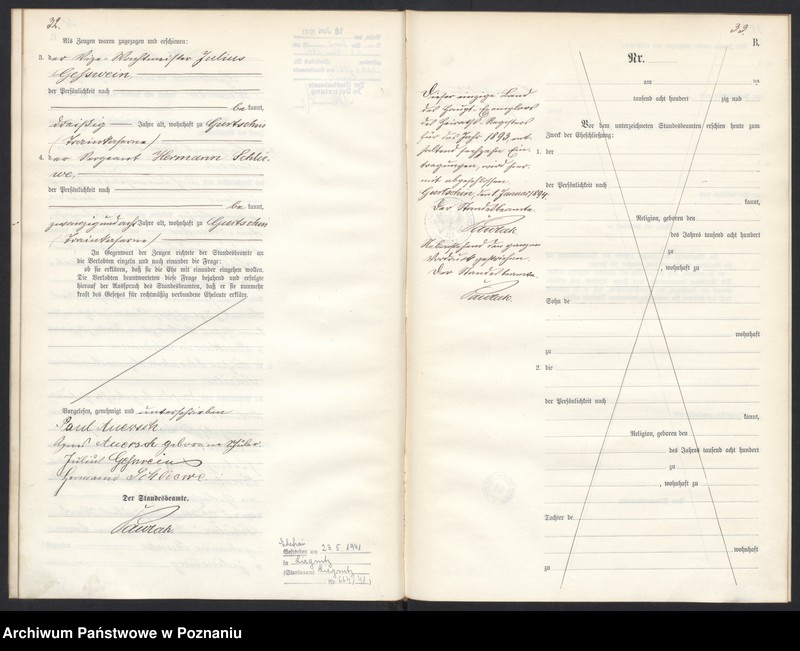 32.
Als Zeugen waren zugezogen und erschienen:
3. der Vize-Wachtmeister Julius
Gehswein,
der Persönlichkeit nach
be kannt,
dreißig Jahre alt, wohnhaft zu Gurtschin
(Trainkaserne)
4. der Sergeant Hermann Schlie-
we,
der Persönlichkeit nach
be kannt,
zwanzigundacht Jahre alt, wohnhaft zu Gurtschin
(Trainkaserne)
In Gegenwart der Zeugen richtete der Standesbeamte an
die Verlobten einzeln und nach einander die Frage:
ob sie erklären, daß sie die Ehe mit einander eingehen wollen.
Die Verlobten beantworteten diese Frage bejahend und erfolgte
hierauf der Ausspruch des Standesbeamten, daß er sie nunmehr
kraft des Gesetzes für rechtmäßig verbundene Eheleute erkläre.
Vorgelesen, genehmigt und unterschrieben
Paul Auersch
Agnes Auersch geborene
Julius Gehswein
Hermann Schliewe
Der Standesbeamte.
Pawlak.
Gestorben am 23.5.1941
in Liegnitz
(Standesamt Liegnitz
33.
B.
Dieser einzige Band
des Haupt-Exemplars
des Heiraths-Registers
für das Jahr 1893 ent-
haltend sechzehn Ein-
tragungen, wird hier-
mit abgeschlossen.
Gurtschin, den 1 Januar 1894.
Der Standesbeamte.
Pawlak
Nebenstehend den ganzen
Vordruck gestrichen.
Der Standesbeamte.
Pawlak.
Nr.
am
tausend acht hundert zig und
Vor dem unterzeichneten Standesbeamten erschien heute zum
Zweck der Eheschließung:
1. der
der Persönlichkeit nach
kannt,
Religion, geboren den
des Jahres tausend acht hundert
zu
, wohnhaft zu
Sohn de
wohnhaft
zu
2. die
der Persönlichkeit nach
kannt,
Religion, geboren den
des Jahres tausend acht hundert
zu
, wohnhaft zu
Tochter de
wohnhaft
zu
Archiwum Państwowe w Poznaniu